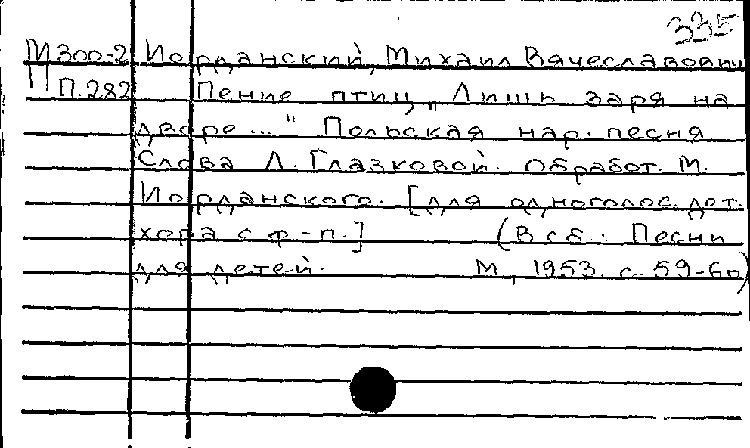 335
М300-2 Иорданский, Михаил Вячеславович
П.282 Пение птиц „Лишь заря на
дворе..." Польская нар. песня
Слова Л. Глазковой. Обработ. М.
Иорданского. [для одноголос. дет.
хора с ф-п.] (В сб.: Песни
для детей. М., 1953. с. 59-60)